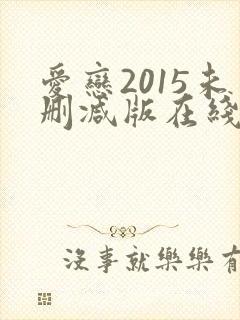 愛戀2015未
刪減版在綫
沒事就樂樂有